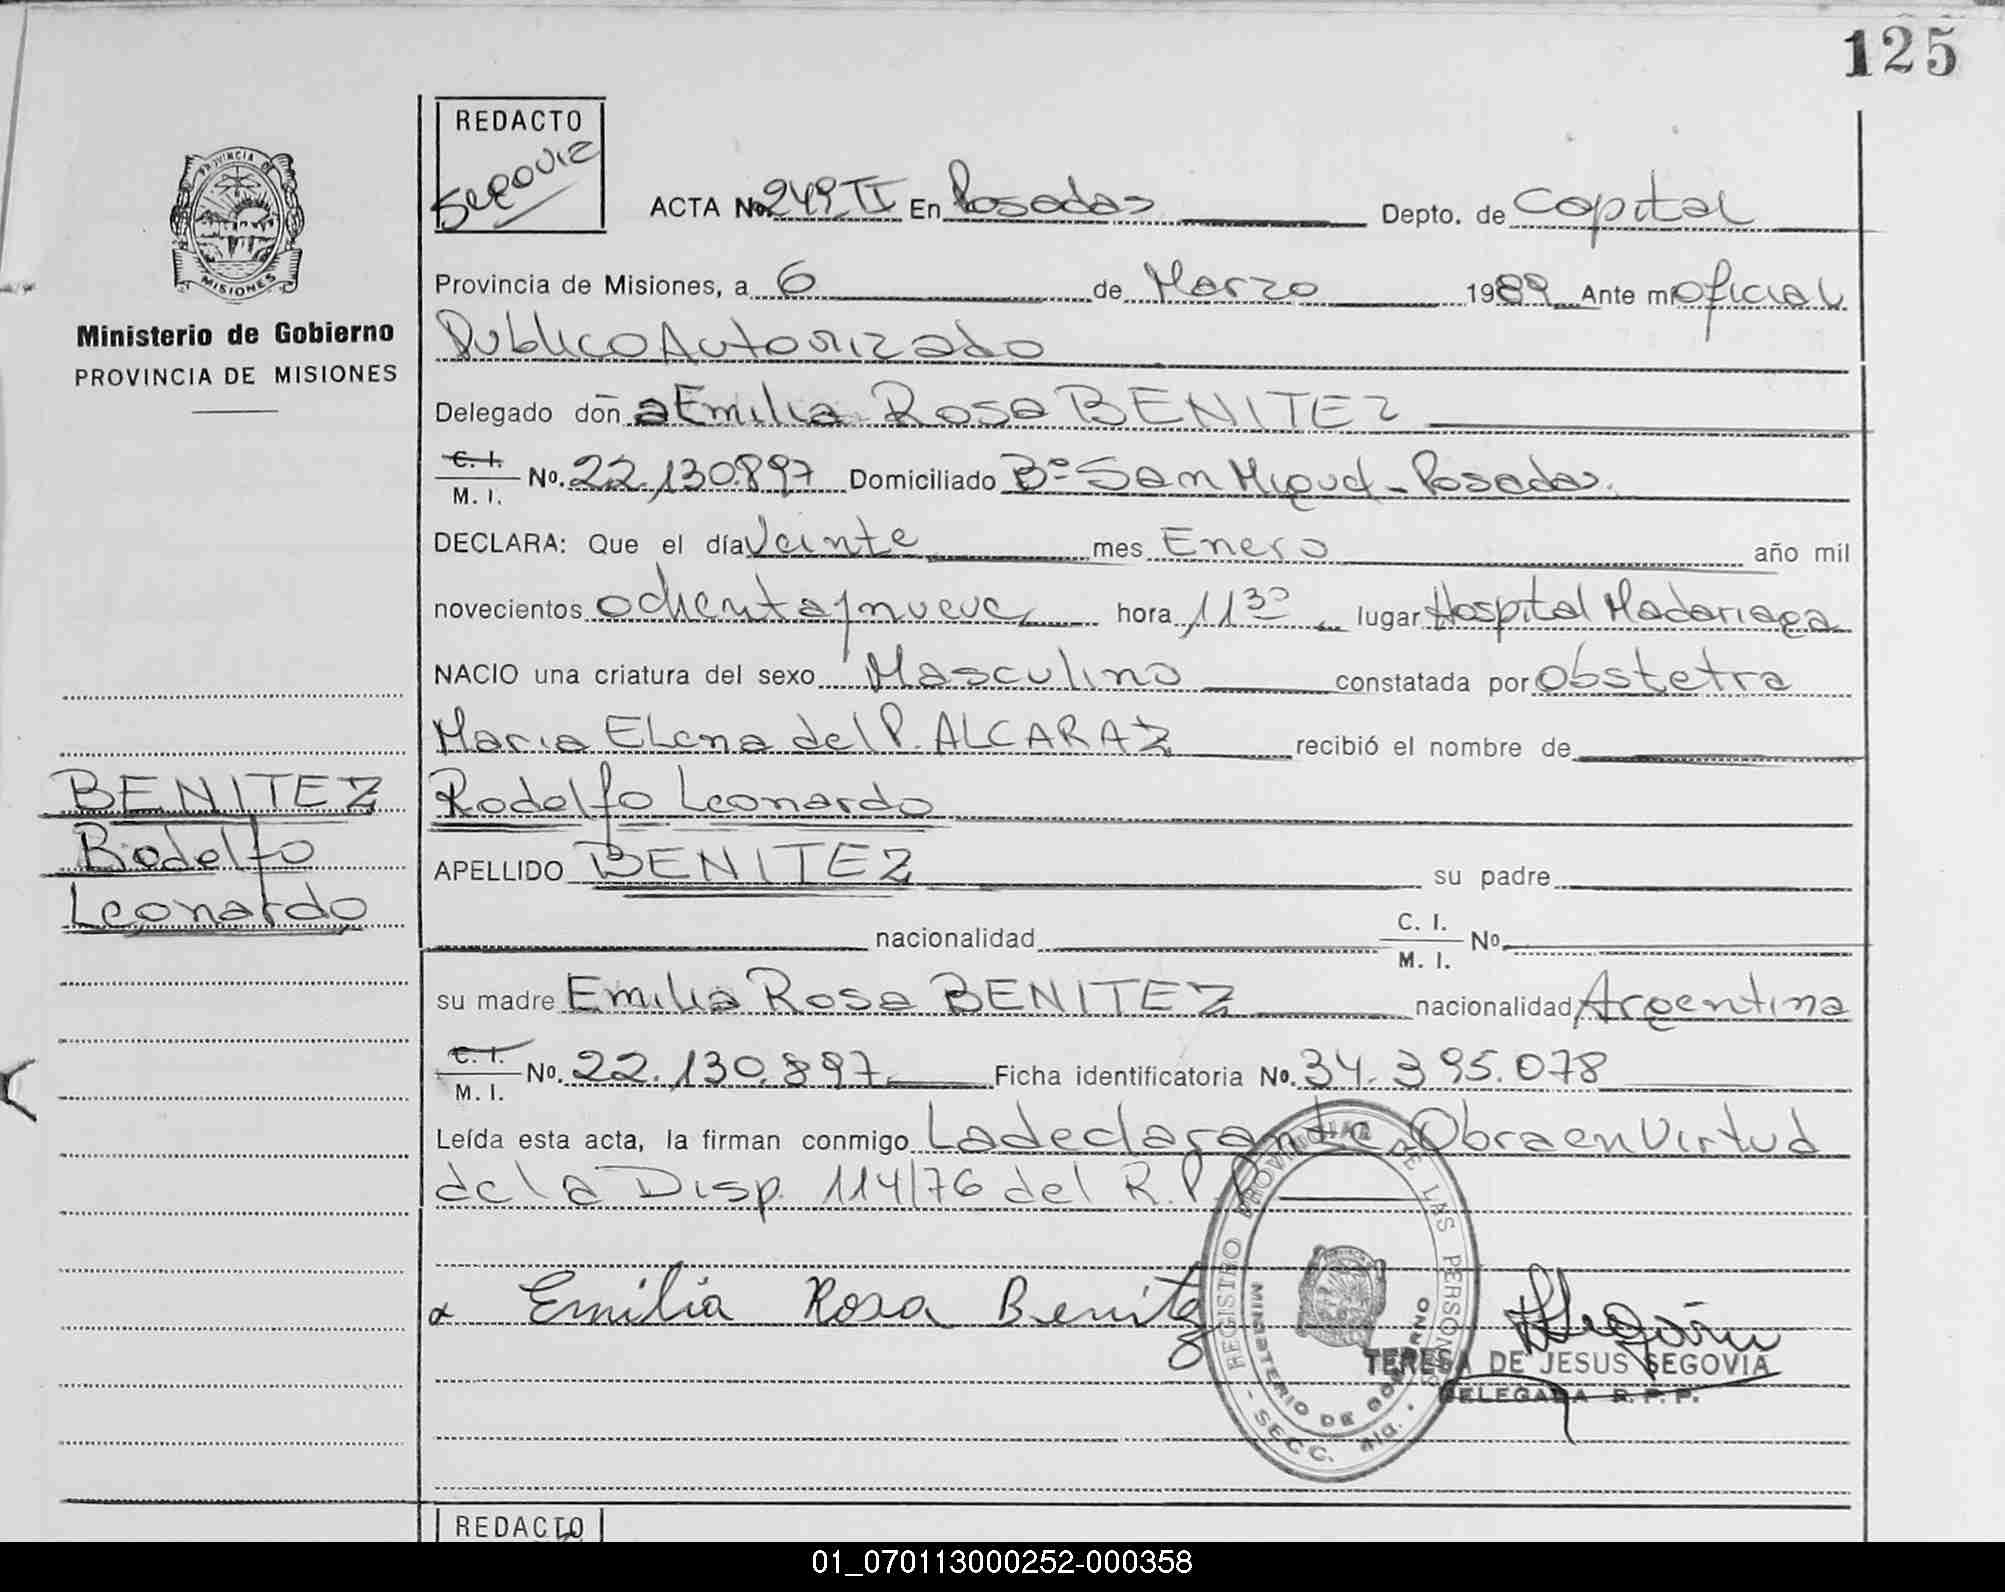 125
REDACTO
Segovia
ACTA No. 249 II En Posadas Depto. de Capital
PROVINCIA DE
MISIONES
Provincia de Misiones, a 6 de Marzo 1989 Ante mi oficial
Ministerio de Gobierno
PROVINCIA DE MISIONES
Publico Autorizado
Delegado don a Emilia Rosa BENITEZ
C. I.
M. I. No. 22.130.897 Domiciliado Bº San Miguel - Posadas.
DECLARA: Que el día Veinte mes Enero año mil
novecientos ochenta y nueve hora 11 30 lugar Hospital Madariaga
NACIO una criatura del sexo Masculino constatada por Obstetra
Maria Elena del P. ALCARAZ recibió el nombre de
BENITEZ
Rodolfo
Leonardo
Rodolfo Leonardo
APELLIDO BENITEZ su padre
nacionalidad C. I.
M. I. No.
su madre Emilia Rosa BENITEZ nacionalidad Argentina
C. I.
M. I. No. 22.130.897 Ficha identificatoria No. 34.395.078
Leída esta acta, la firman conmigo La declarante, Obra en Virtud
de la Disp. 114/76 del R.P.P.
Emilia Rosa Benitez
REGISTRO PROVINCIAL DE LAS PERSONAS
MINISTERIO DE GOBIERNO
- SECC.
TERESA DE JESUS SEGOVIA
DELEGADA R. P. P.
REDACTO
01_070113000252-000358